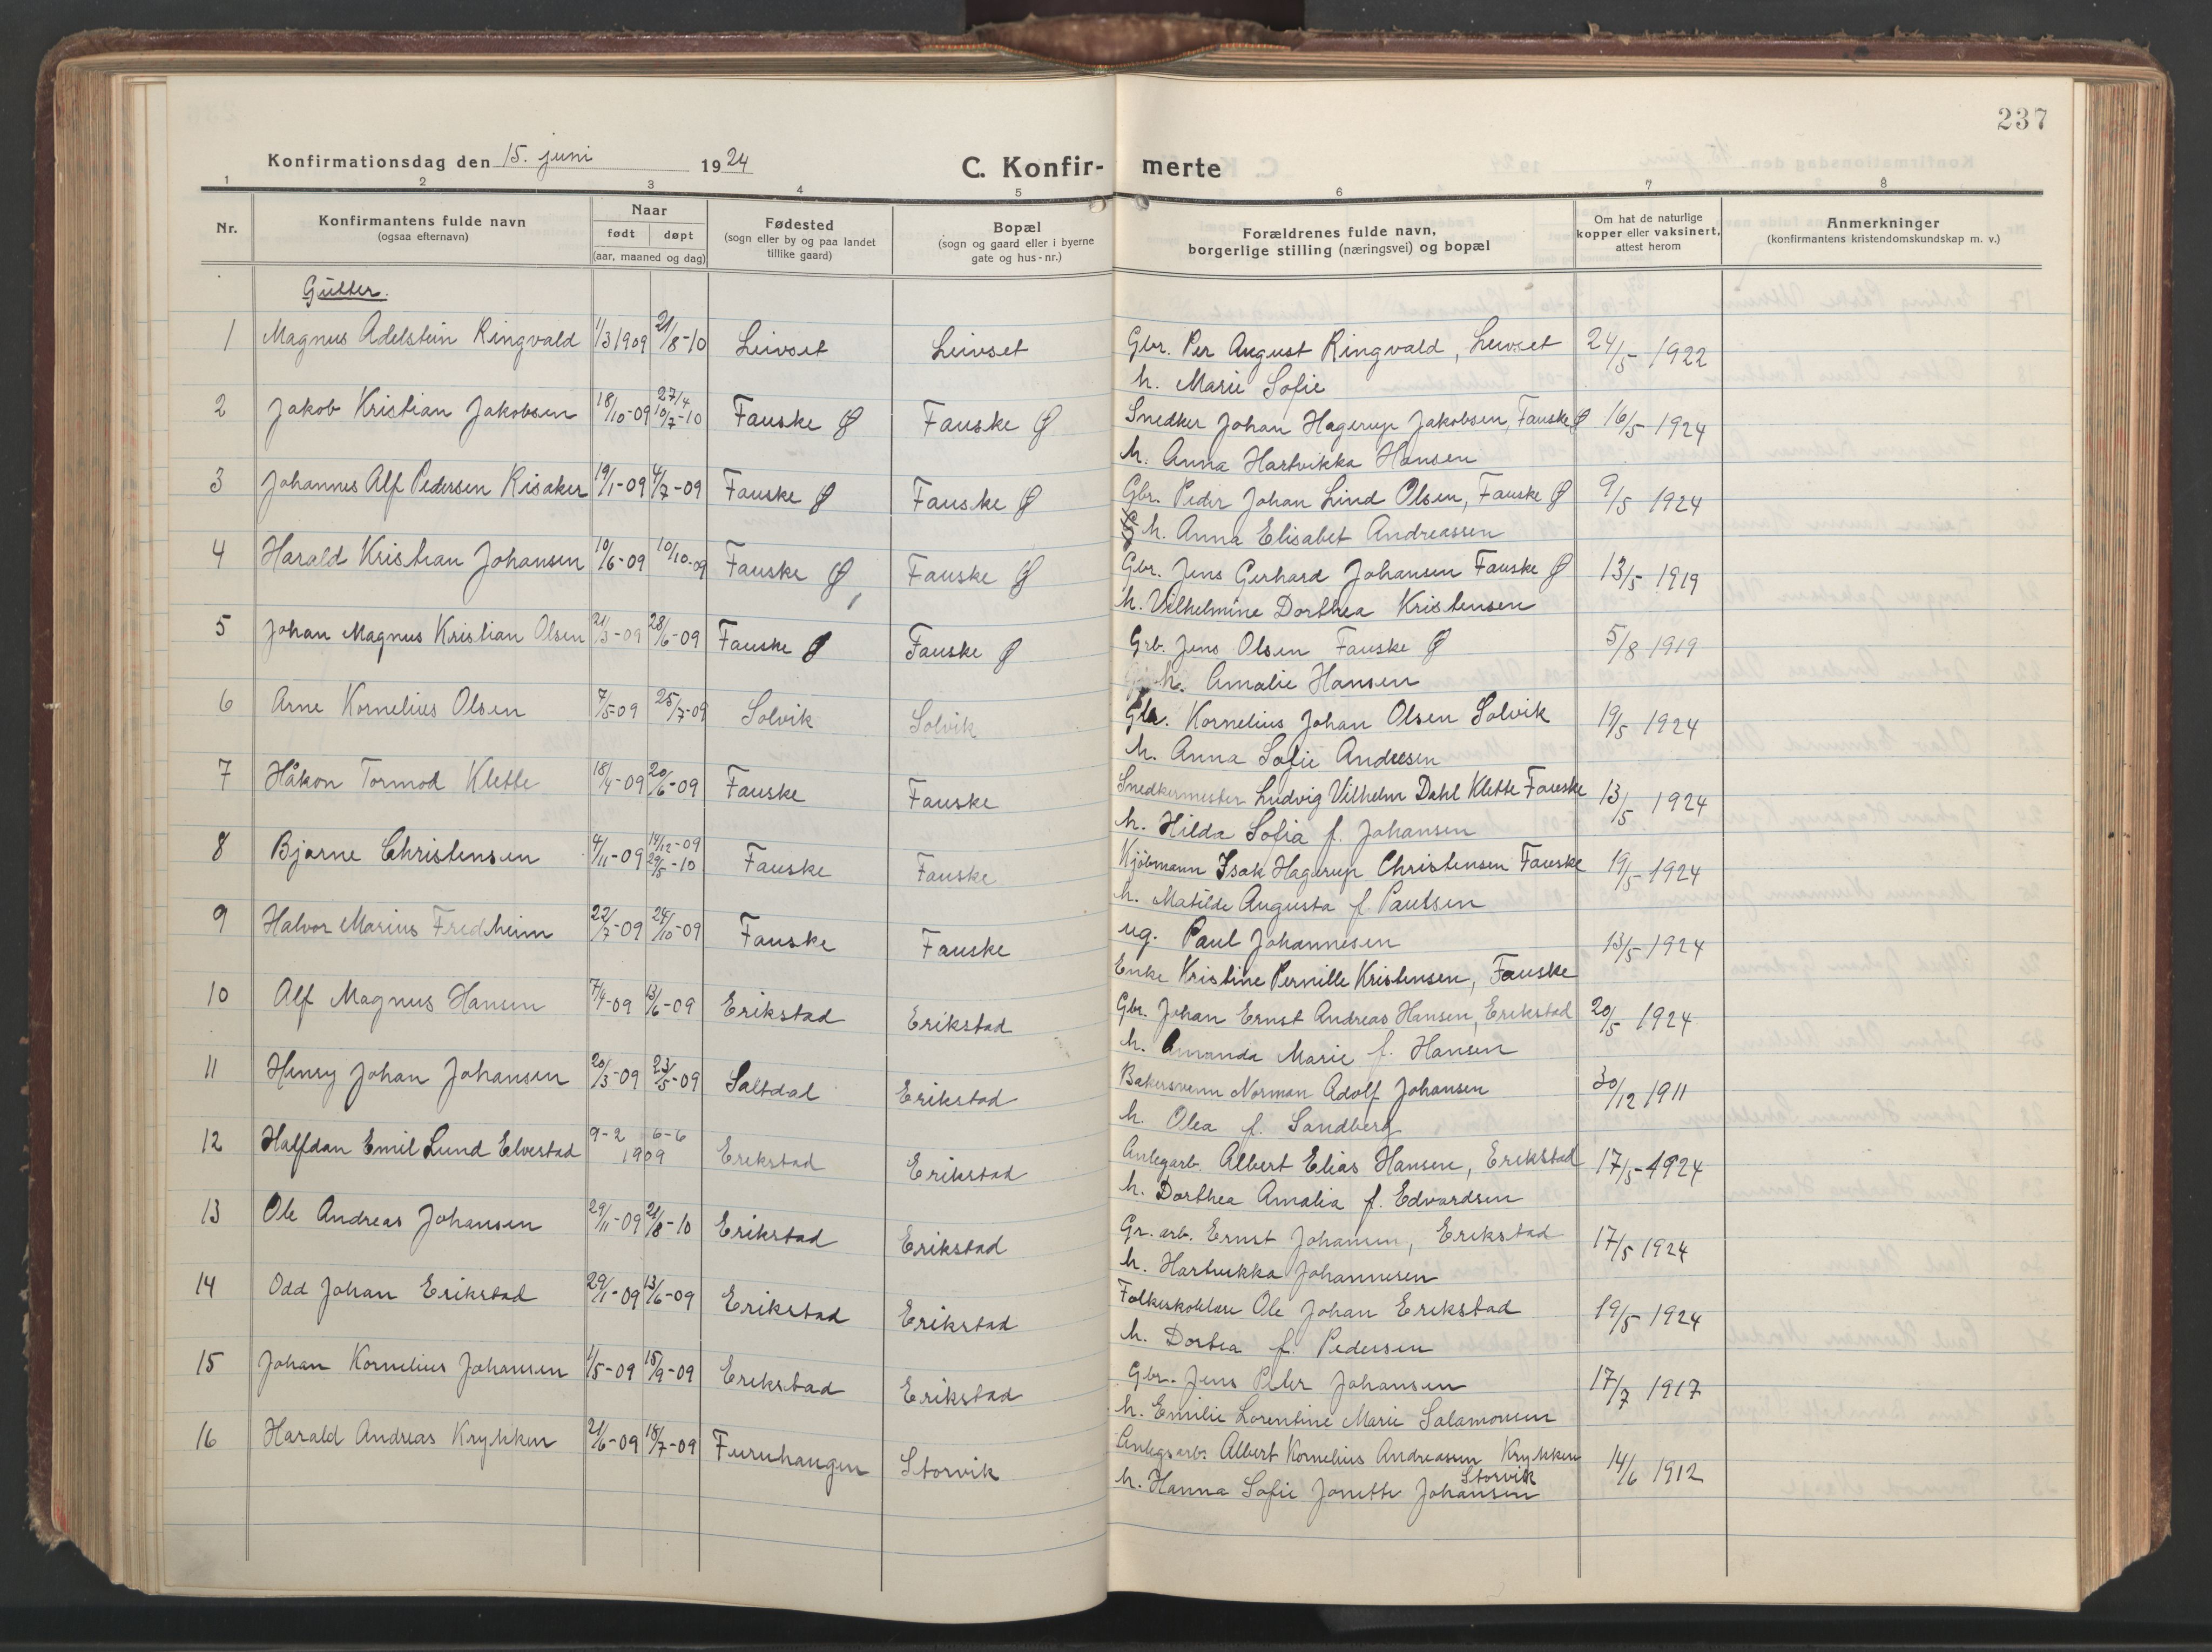 237
Konfirmationsdag den 15. juni 1924
C. Konfir- merte
1 2 3 4 5 6 7 8
Nr.
Konfirmantens fulde navn
(ogsaa efternavn)
Naar
født døpt
(aar, maaned og dag)
Fødested
(sogn eller by og paa landet
tillike gaard)
Bopæl
(sogn og gaard eller i byerne
gate og hus-nr.)
Forældrenes fulde navn,
borgerlige stilling (næringsvei) og bopæl
Om hat de naturlige
kopper eller vaksinert,
attest herom
Anmerkninger
(konfirmantens kristendomskundskap m. v.)
Gutter.
1 Magnus Adelstein Ringvald 1/3 1909 21/8-10 Leivset Leivset Gbr. Per August Ringvald, Leivset 24/5 1922
h. Marie Sofie
2 Jakob Kristian Jakobsen 18/10-09 27/4 10/7-10 Fauske Ø Fauske Ø Snedker Johan Hagerup Jakobsen, Fauske Ø 16/5 1924
h. Anna Hartvikka Hansen
3 Johannes Alf Pedersen Risaker 19/1-09 4/7-09 Fauske Ø Fauske Ø Gbr. Peder Johan Lind Olsen, Fauske Ø 9/5 1924
h. Anna Elisabet Andreassen
4 Harald Kristian Johansen 10/6-09 10/10-09 Fauske Ø Fauske Ø Gbr. Jens Gerhard Johansen Fauske Ø 13/5 1919
h. Vilhelmine Dorthea Kristensen
5 Johan Magnus Kristian Olsen 21/3-09 28/6-09 Fauske Ø Fauske Ø Grb. Jens Olsen Fauske Ø 5/8 1919
h. Amalie Hansen
6 Arne Kornelius Olsen 7/5-09 25/7-09 Solvik Solvik Gbr. Kornelius Johan Olsen Solvik 19/5 1924
h. Anna Sofie Andresen
7 Håkon Tormod Klette 18/4-09 20/6-09 Fauske Fauske Snedkermester Ludvig Vilhelm Dahl Klette Fauske 13/5 1924
h. Hilda Sofia f. Johansen
8 Bjarne Christensen 4/11-09 14/12-09 29/5-10 Fauske Fauske Kjöbmann Isak Hagerup Christensen Fauske 19/5-1924
h. Matilde Augusta f. Paulsen
9 Halvor Marius Fredheim 22/7-09 24/10-09 Fauske Fauske ug. Paul Johannesen 13/5-1924
Enke Kristine Pernille Kristensen, Fauske
10 Alf Magnus Hansen 7/4-09 13/6-09 Erikstad Erikstad Gbr. Johan Ernst Andreas Hansen, Erikstad 20/5 1924
h. Amanda Marie f. Hansen
11 Henry Johan Johansen 20/3-09 23/5-09 Saltdal Erikstad Bakersvenn Norman Adolf Johansen 30/12 1911
h. Olea f. Sandberg
12 Halfdan Emil Lund Elvestad 9-2 6-6 1909 Erikstad Erikstad Anlegarb. Albert Elias Hansen, Erikstad 17/5-1924
h. Dorthea Amalia f. Edvardsen
13 Ole Andreas Johansen 29/11-09 21/8-10 Erikstad Erikstad Gr. arb. Ernst Johansen, Erikstad 17/5 1924
h. Hartvikka Johannesen
14 Odd Johan Erikstad 29/1-09 13/6-09 Erikstad Erikstad Folkeskolelære Ole Johan Erikstad 19/5 1924
h. Dortea f. Pedersen
15 Johan Kornelius Johansen 1/5-09 15/9-09 Erikstad Erikstad Gbr. Jens Peter Johansen 17/7 1917
h. Emilie Lorentine Marie Salamonsen
16 Harald Andreas Krykken 21/6-09 18/7-09 Furuhaugen Storvik Anlegsarb. Albert Kornelius Andreasen Krykken Storvik 14/6 1912
h. Hanna Sofie Jonette Johansen